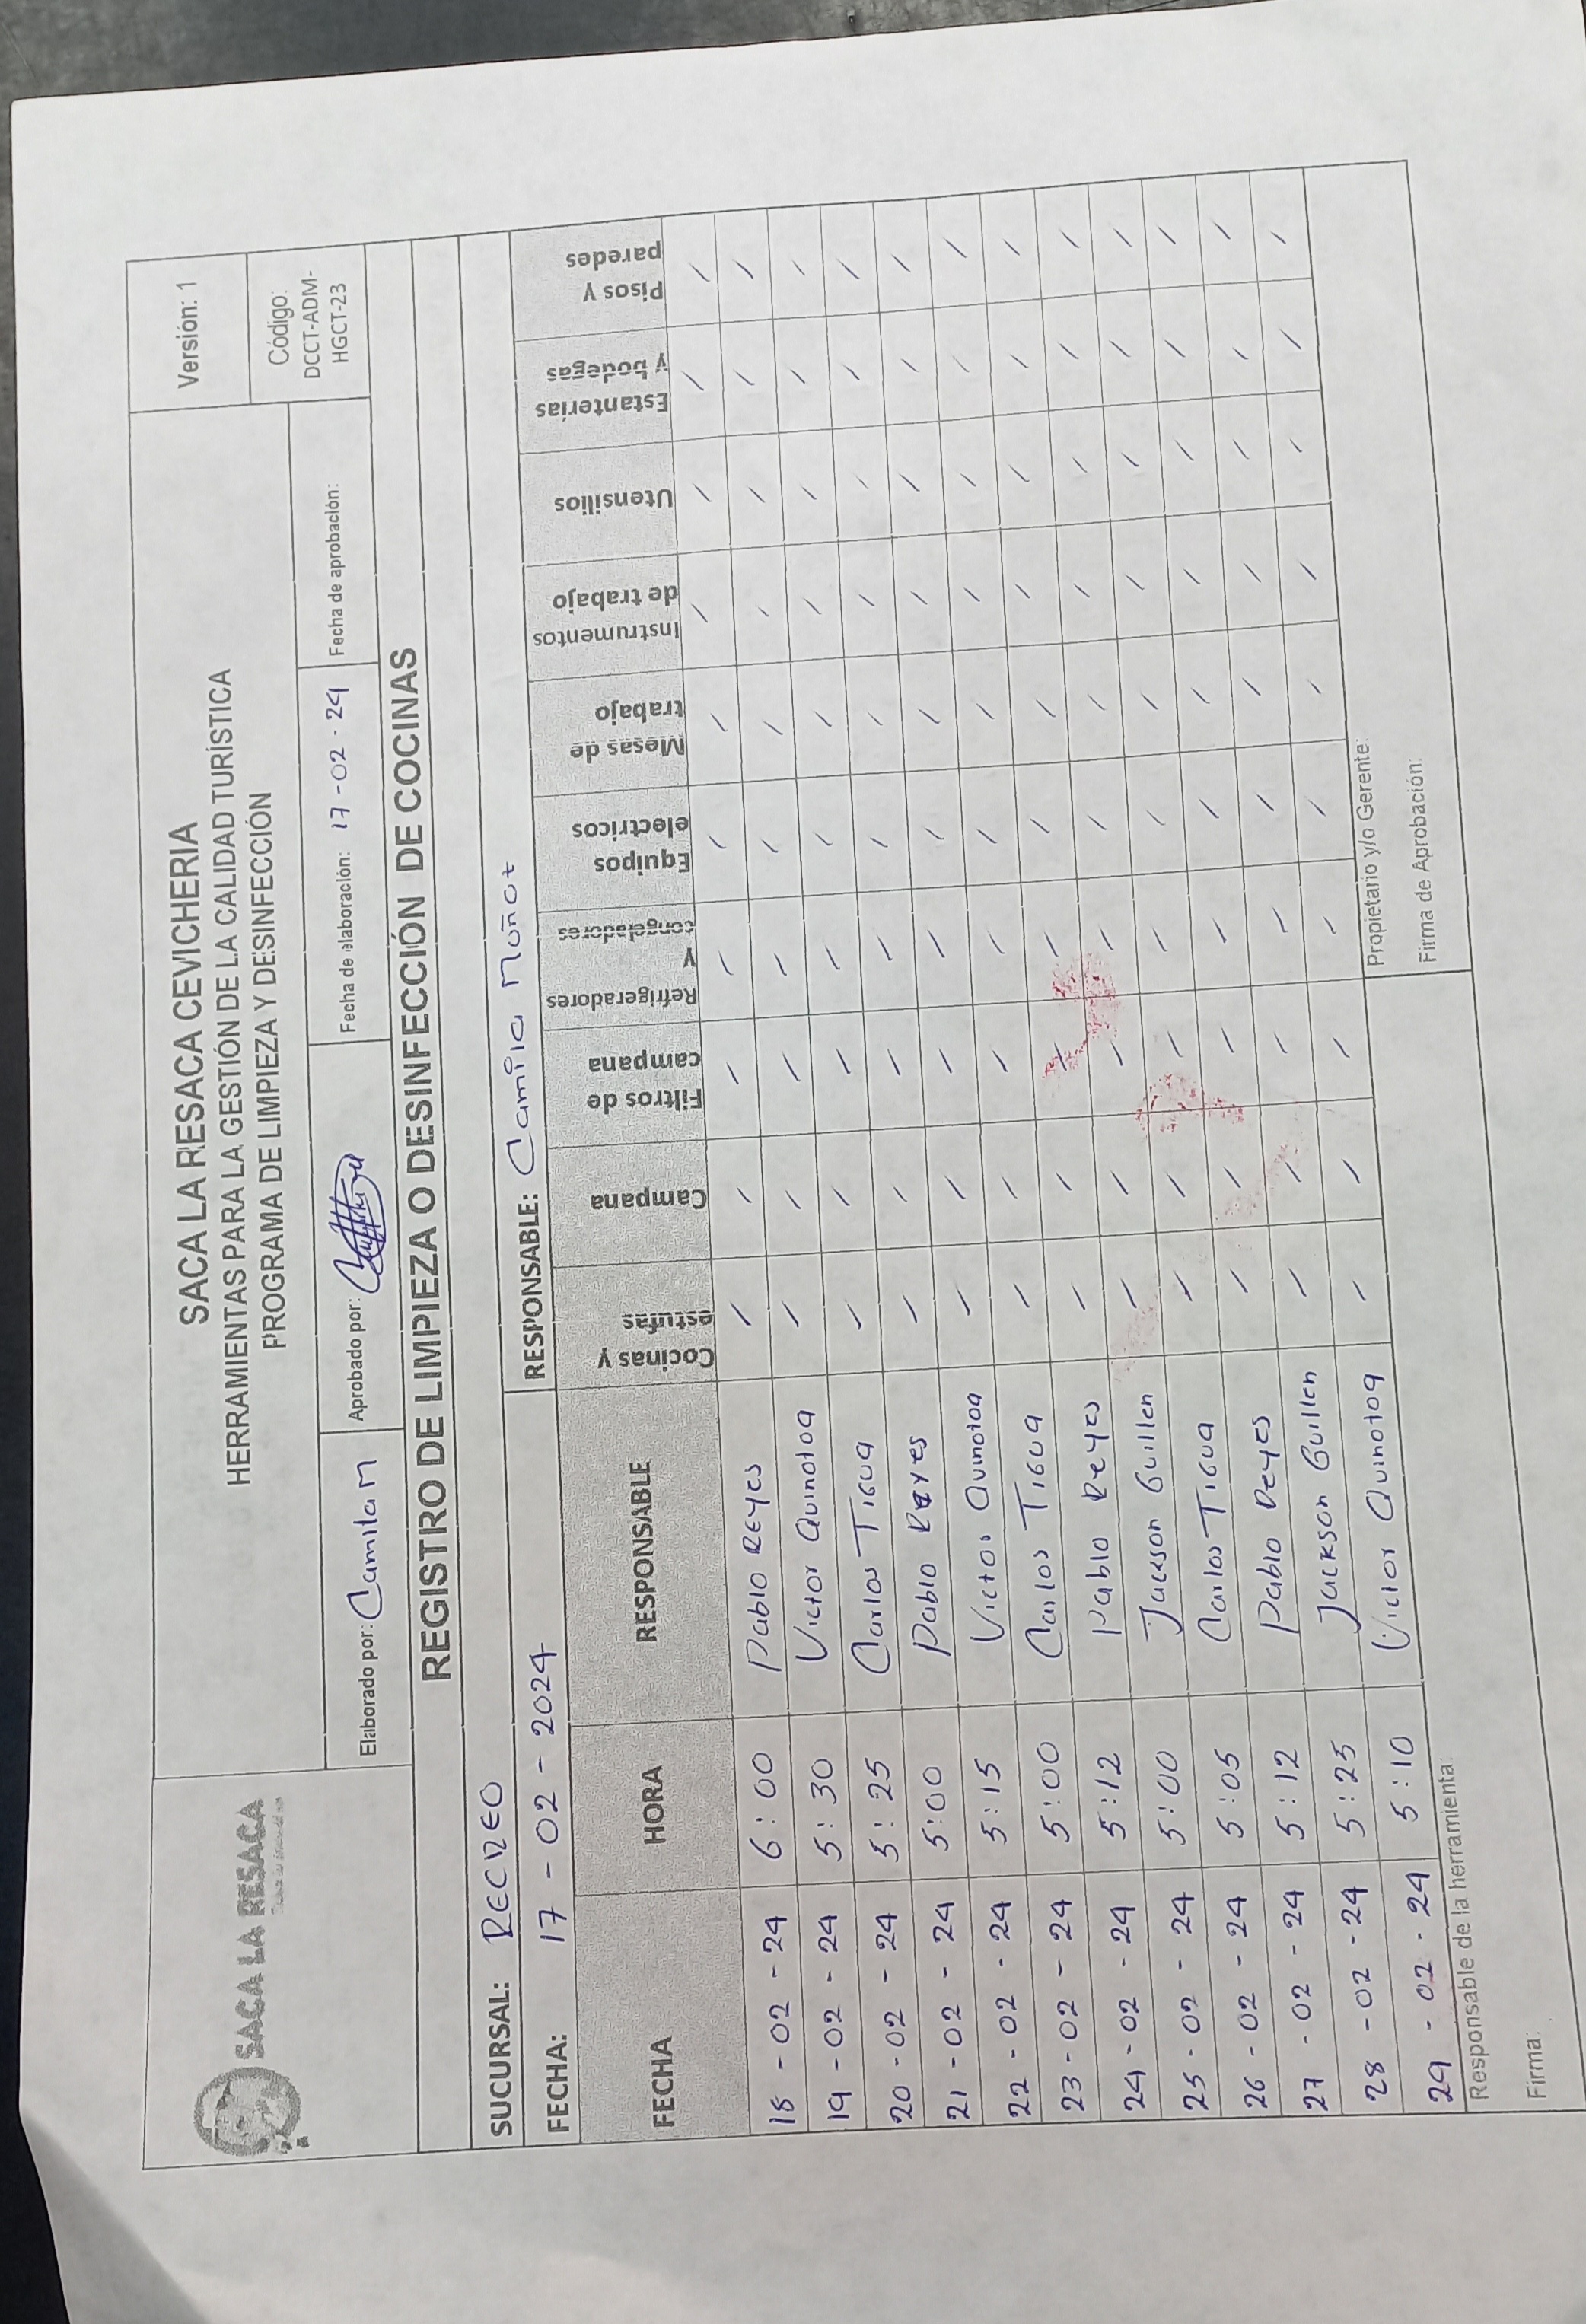 SACA LA RESACA
SACA LA RESACA CEVICHERIA
HERRAMIENTAS PARA LA GESTIÓN DE LA CALIDAD TURÍSTICA
PROGRAMA DE LIMPIEZA Y DESINFECCIÓN
Versión: 1
Código:
DCCT-ADM-
HGCT-23
Elaborado por: Camila M Aprobado por: Fecha de elaboración: 17-02-24 Fecha de aprobación:
REGISTRO DE LIMPIEZA O DESINFECCIÓN DE COCINAS
SUCURSAL: RECREO
FECHA: 17-02-2024 RESPONSABLE: Camila Muñoz
FECHA HORA RESPONSABLE Cocinas y estufas Campana Filtros de campana Refrigeradores y congeladores Equipos electricos Mesas de trabajo Instrumentos de trabajo Utensilios Estanterías y bodegas Pisos y paredes
18-02-24 6:00 Pablo Reyes / / / / / / / / / /
19-02-24 5:30 Victor Quinotoa / / / / / / / / / /
20-02-24 5:25 Carlos Tigua / / / / / / / / / /
21-02-24 5:00 Pablo Reyes / / / / / / / / / /
22-02-24 5:15 Victor Quinotoa / / / / / / / / / /
23-02-24 5:00 Carlos Tigua / / / / / / / / / /
24-02-24 5:12 Pablo Reyes / / / / / / / / / /
25-02-24 5:00 Jackson Guillen / / / / / / / / / /
26-02-24 5:05 Carlos Tigua / / / / / / / / / /
27-02-24 5:12 Pablo Reyes / / / / / / / / / /
28-02-24 5:25 Jackson Guillen / / / / / / / / / /
29-02-24 5:10 Victor Quinotoa / / / / / / / / / /
Responsable de la herramienta: Propietario y/o Gerente:
Firma: Firma de Aprobación: